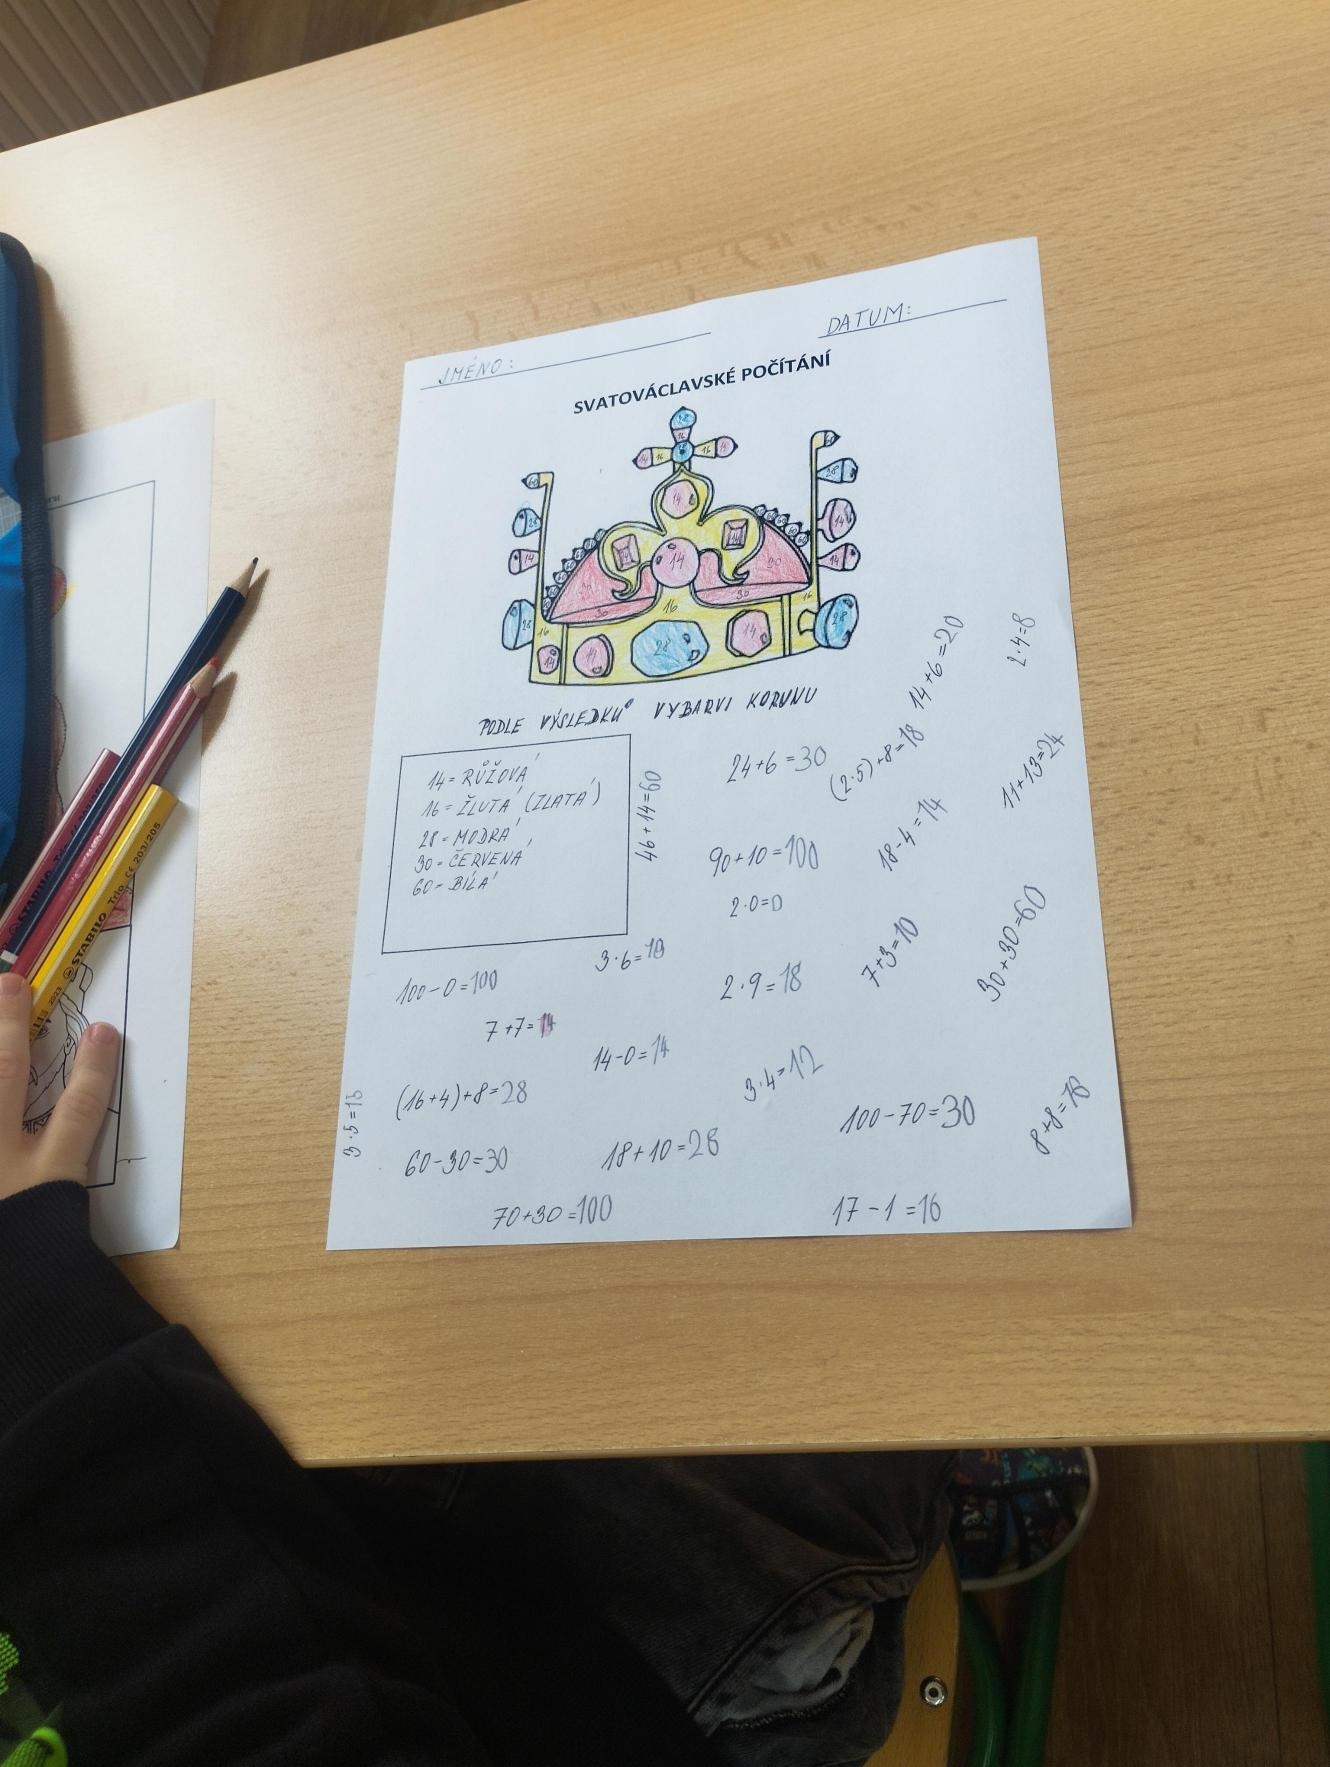 JMÉNO:
DATUM:
SVATOVÁCLAVSKÉ POČÍTÁNÍ
28
16
14 16 16 14
60
60
28
28
14
14
14
14
14
14
30
30
30
16
16
28
28
16
14 14 28 14
PODLE VÝSLEDKŮ VYBARVI KORUNU
14 = RŮŽOVÁ
16 = ŽLUTÁ (ZLATÁ)
28 = MODRÁ
30 = ČERVENÁ
60 = BÍLÁ
46 + 14 = 60
24 + 6 = 30
(2·5) + 8 = 18
14 + 6 = 20
2·4 = 8
90 + 10 = 100
18 - 4 = 14
11 + 13 = 24
2·0 = 0
3·6 = 18
100 - 0 = 100
2·9 = 18
7 + 3 = 10
30 + 30 = 60
7 + 7 = 14
14 - 0 = 14
3·4 = 12
(16 + 4) + 8 = 28
3·5 = 15
100 - 70 = 30
60 - 30 = 30
18 + 10 = 28
8 + 8 = 16
70 + 30 = 100
17 - 1 = 16
STABILO Trio CE 203/205